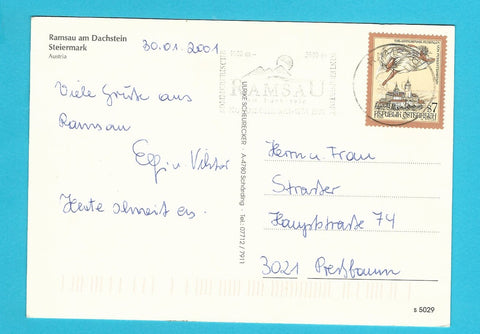 Ramsau am Dachstein
Steiermark
Austria
30.01.2001
Viele Grüße aus
Ramsau
Elfi u. Viktor
Heute schneit es.
RAMSAU
SCHEURECKER · A-4780 Schärding · Tel.: 07712 / 7911
S7
REPUBLIK ÖSTERREICH
Herrn u. Frau
Straßer
Hauptstraße 74
3021 Preßbaum
s 5029